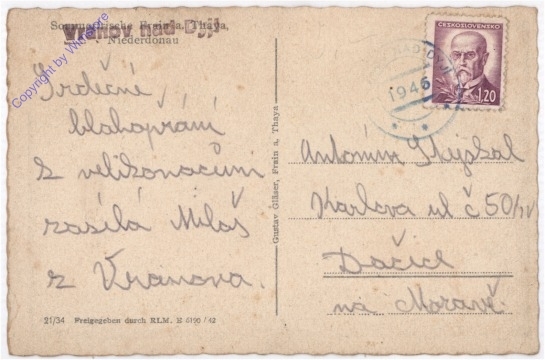 Sommerfrische Frain a. Thaya,
Vranov nad Dyjí
Niederdonau
Copyright by Wincore
Srdečné
blahopřání
k velikonocům
zasílá Miloš
z Vranova.
21/34 Freigegeben durch RLM. E 5190/42
Gustav Gläser, Frain a. Thaya
ČESKOSLOVENSKO
1.20
1946
Antonín
Karlova ul č 50/IV
Dačice
na Moravě.